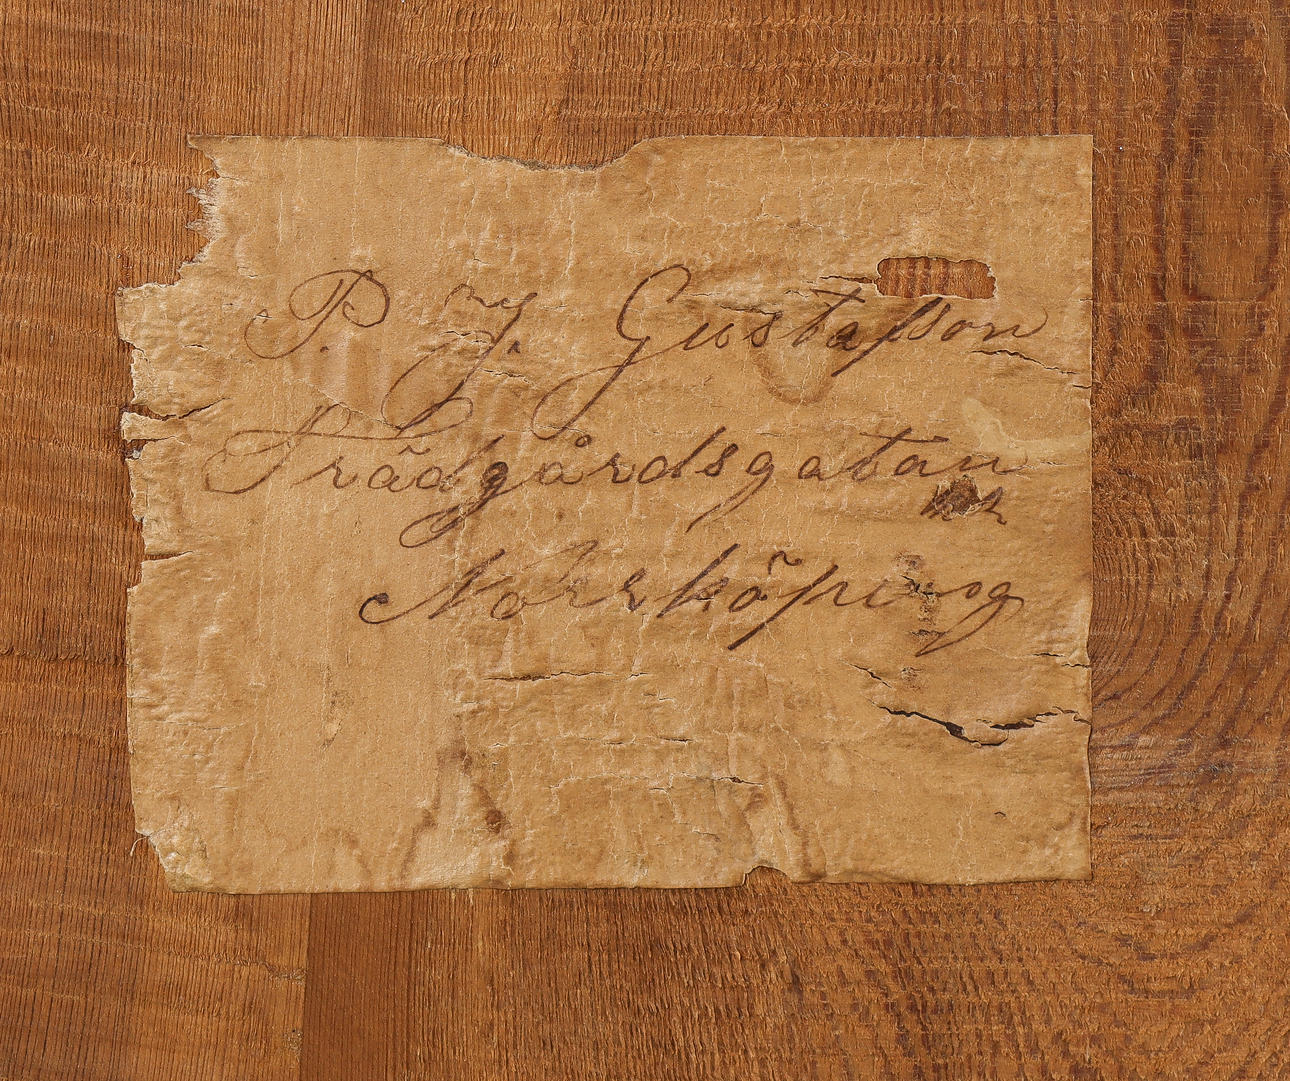 P. J. Gustafsson
Trädgårdsgatan
Norrköping